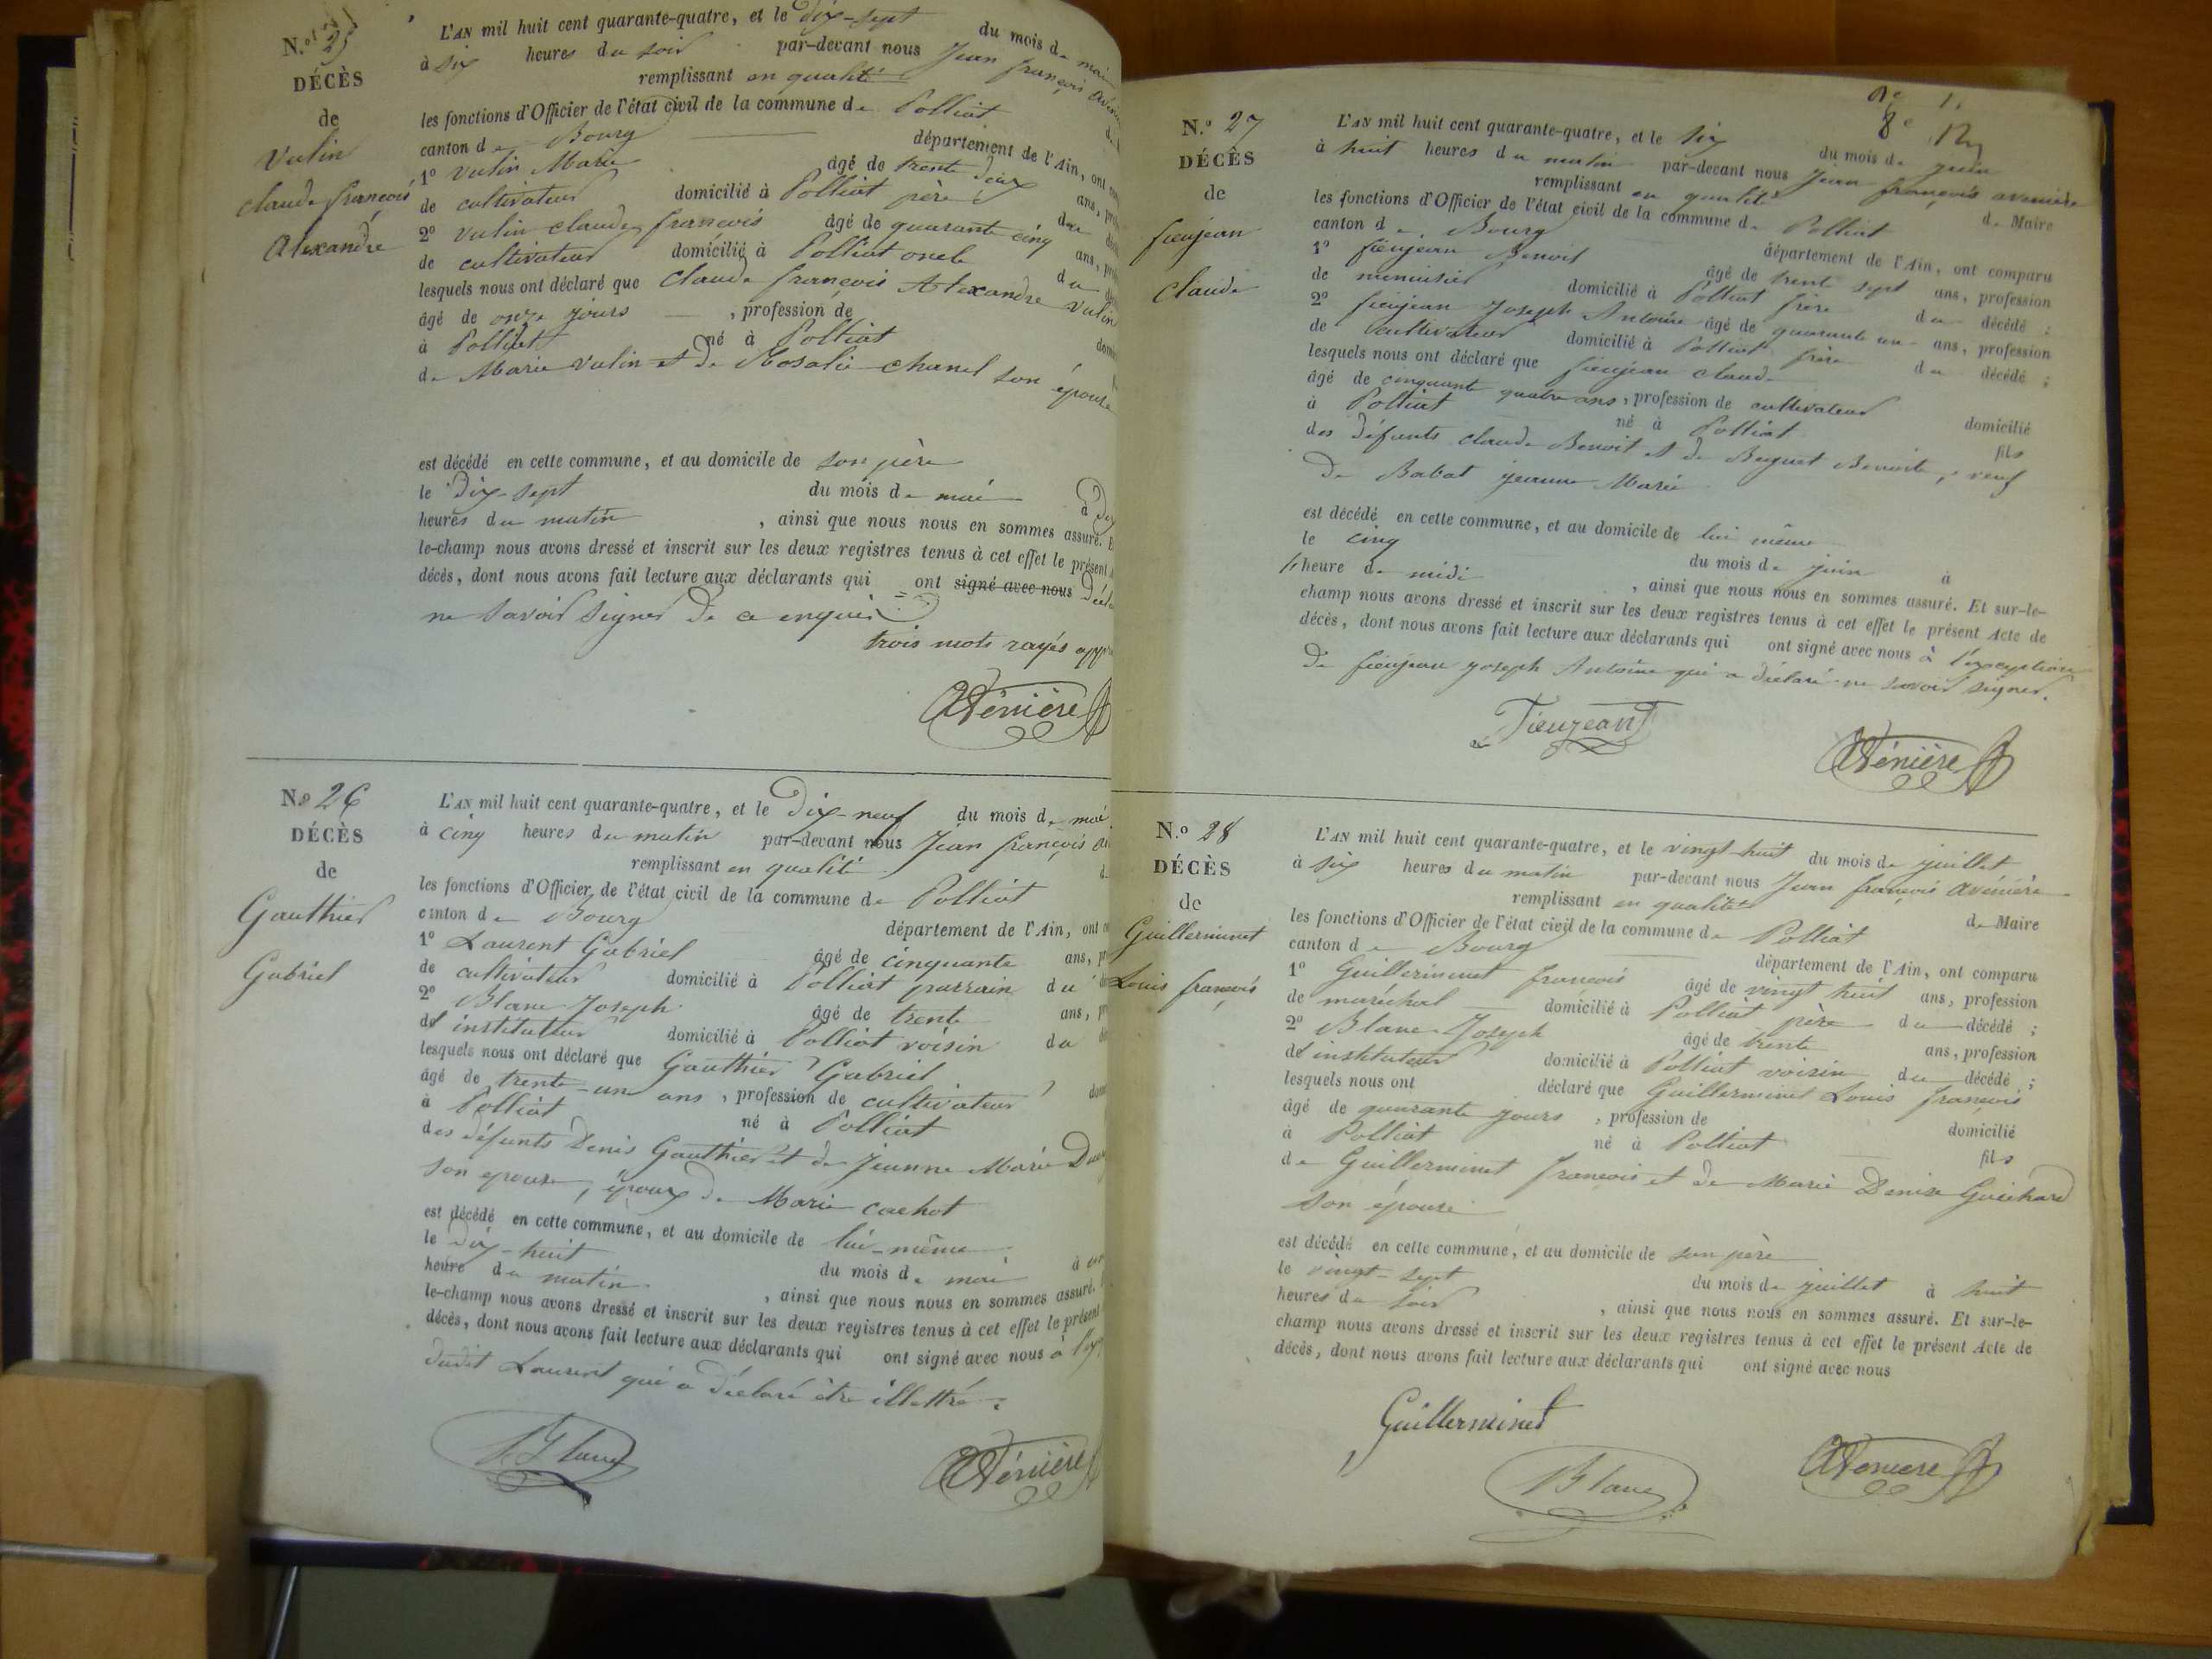 N.º 25
DÉCÈS
de
Vulin
claude françois
Alexandre
L'AN mil huit cent quarante-quatre, et le dix-sept du mois de mai
à six heures du soir par-devant nous Jean françois
remplissant en qualité
les fonctions d'Officier de l'état civil de la commune de Polliat
canton de Bourg département de l'Ain, ont
1º Vulin Marie âgé de trente deux ans,
de cultivateur domicilié à Polliat père du
2º Vulin claude françois âgé de quarante cinq ans,
de cultivateur domicilié à Polliat oncle du
lesquels nous ont déclaré que Claude françois Alexandre Vulin
âgé de onze jours , profession de
à Polliat né à Polliat
de Marie Vulin et de Rosalie Chanel son épouse
est décédé en cette commune, et au domicile de son père
le dix-sept du mois de mai à
heures du matin , ainsi que nous nous en sommes assuré.
le-champ nous avons dressé et inscrit sur les deux registres tenus à cet effet le présent
décès, dont nous avons fait lecture aux déclarants qui ont signé avec nous
ne savoir signer de ce enquis
trois mots rayés
Avénière
N.º 26
DÉCÈS
de
Gauthier
Gabriel
L'AN mil huit cent quarante-quatre, et le dix-neuf du mois de mai
à cinq heures du matin par-devant nous Jean françois
remplissant en qualité
les fonctions d'Officier de l'état civil de la commune de Polliat
canton de Bourg département de l'Ain, ont
1º Laurent Gabriel âgé de cinquante ans,
de cultivateur domicilié à Polliat parrain du
2º Blanc Joseph âgé de trente ans,
d'instituteur domicilié à Polliat voisin du
lesquels nous ont déclaré que Gauthier Gabriel
âgé de trente-un ans , profession de cultivateur
à Polliat né à Polliat
des défunts Denis Gauthier et de Jeanne Marie
son epouse, époux de Marie cachot
est décédé en cette commune, et au domicile de lui-même
le dix-huit du mois de mai à
heure du matin , ainsi que nous nous en sommes assuré.
le-champ nous avons dressé et inscrit sur les deux registres tenus à cet effet le présent
décès, dont nous avons fait lecture aux déclarants qui ont signé avec nous à
dudit Laurent qui a déclaré être illettré.
Blanc
Avénière
N.º 27
DÉCÈS
de
fieujean
Claude
L'AN mil huit cent quarante-quatre, et le six du mois de juin
à huit heures du matin par-devant nous Jean françois avenière
remplissant en qualité de Maire
les fonctions d'Officier de l'état civil de la commune de Polliat
canton de Bourg département de l'Ain, ont comparu
1º fieujean Benoit âgé de trente sept ans, profession
de menuisier domicilié à Polliat frère du décédé ;
2º fieujean Joseph Antoine âgé de quarante un ans, profession
de cultivateur domicilié à Polliat frère du décédé ;
lesquels nous ont déclaré que fieujean claude
âgé de cinquante quatre ans , profession de cultivateur domicilié
à Polliat né à Polliat fils
des défunts claude Benoit et de Buguet Benoite, veuf
de Babat jeanne Marie
est décédé en cette commune, et au domicile de lui même
le cinq du mois de juin à
heure de midi , ainsi que nous nous en sommes assuré. Et sur-le-
champ nous avons dressé et inscrit sur les deux registres tenus à cet effet le présent Acte de
décès, dont nous avons fait lecture aux déclarants qui ont signé avec nous à l'exception
de fieujean joseph Antoine qui a déclaré ne savoir signer.
Fieujean
Avénière
N.º 28
DÉCÈS
de
Guillerminet
Louis françois
L'AN mil huit cent quarante-quatre, et le vingt-huit du mois de juillet
à six heures du matin par-devant nous Jean françois avénière
remplissant en qualité de Maire
les fonctions d'Officier de l'état civil de la commune de Polliat
canton de Bourg département de l'Ain, ont comparu
1º Guillerminet françois âgé de vingt huit ans, profession
de maréchal domicilié à Polliat père du décédé ;
2º Blanc Joseph âgé de trente ans, profession
d'instituteur domicilié à Polliat voisin du décédé ;
lesquels nous ont déclaré que Guillerminet Louis françois
âgé de quarante jours , profession de domicilié
à Polliat né à Polliat fils
de Guillerminet françois et de Marie Denise Guichard
son épouse
est décédé en cette commune, et au domicile de son père
le vingt-sept du mois de juillet à huit
heures du soir , ainsi que nous nous en sommes assuré. Et sur-le-
champ nous avons dressé et inscrit sur les deux registres tenus à cet effet le présent Acte de
décès, dont nous avons fait lecture aux déclarants qui ont signé avec nous
Guillerminet
Blanc
Avénière